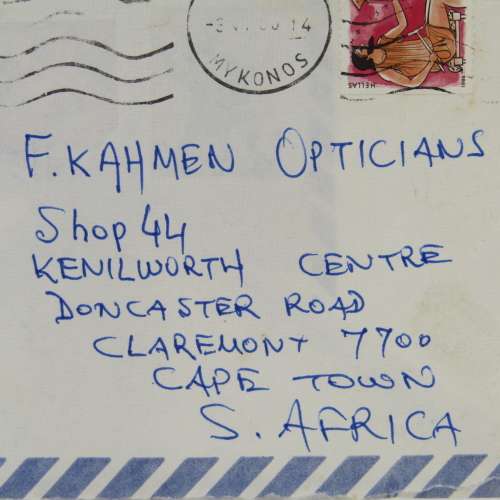 MYKONOS
HELLAS
F. KAHMEN OPTICIANS
Shop 44
KENILWORTH CENTRE
DONCASTER ROAD
CLAREMONT 7700
CAPE TOWN
S. AFRICA